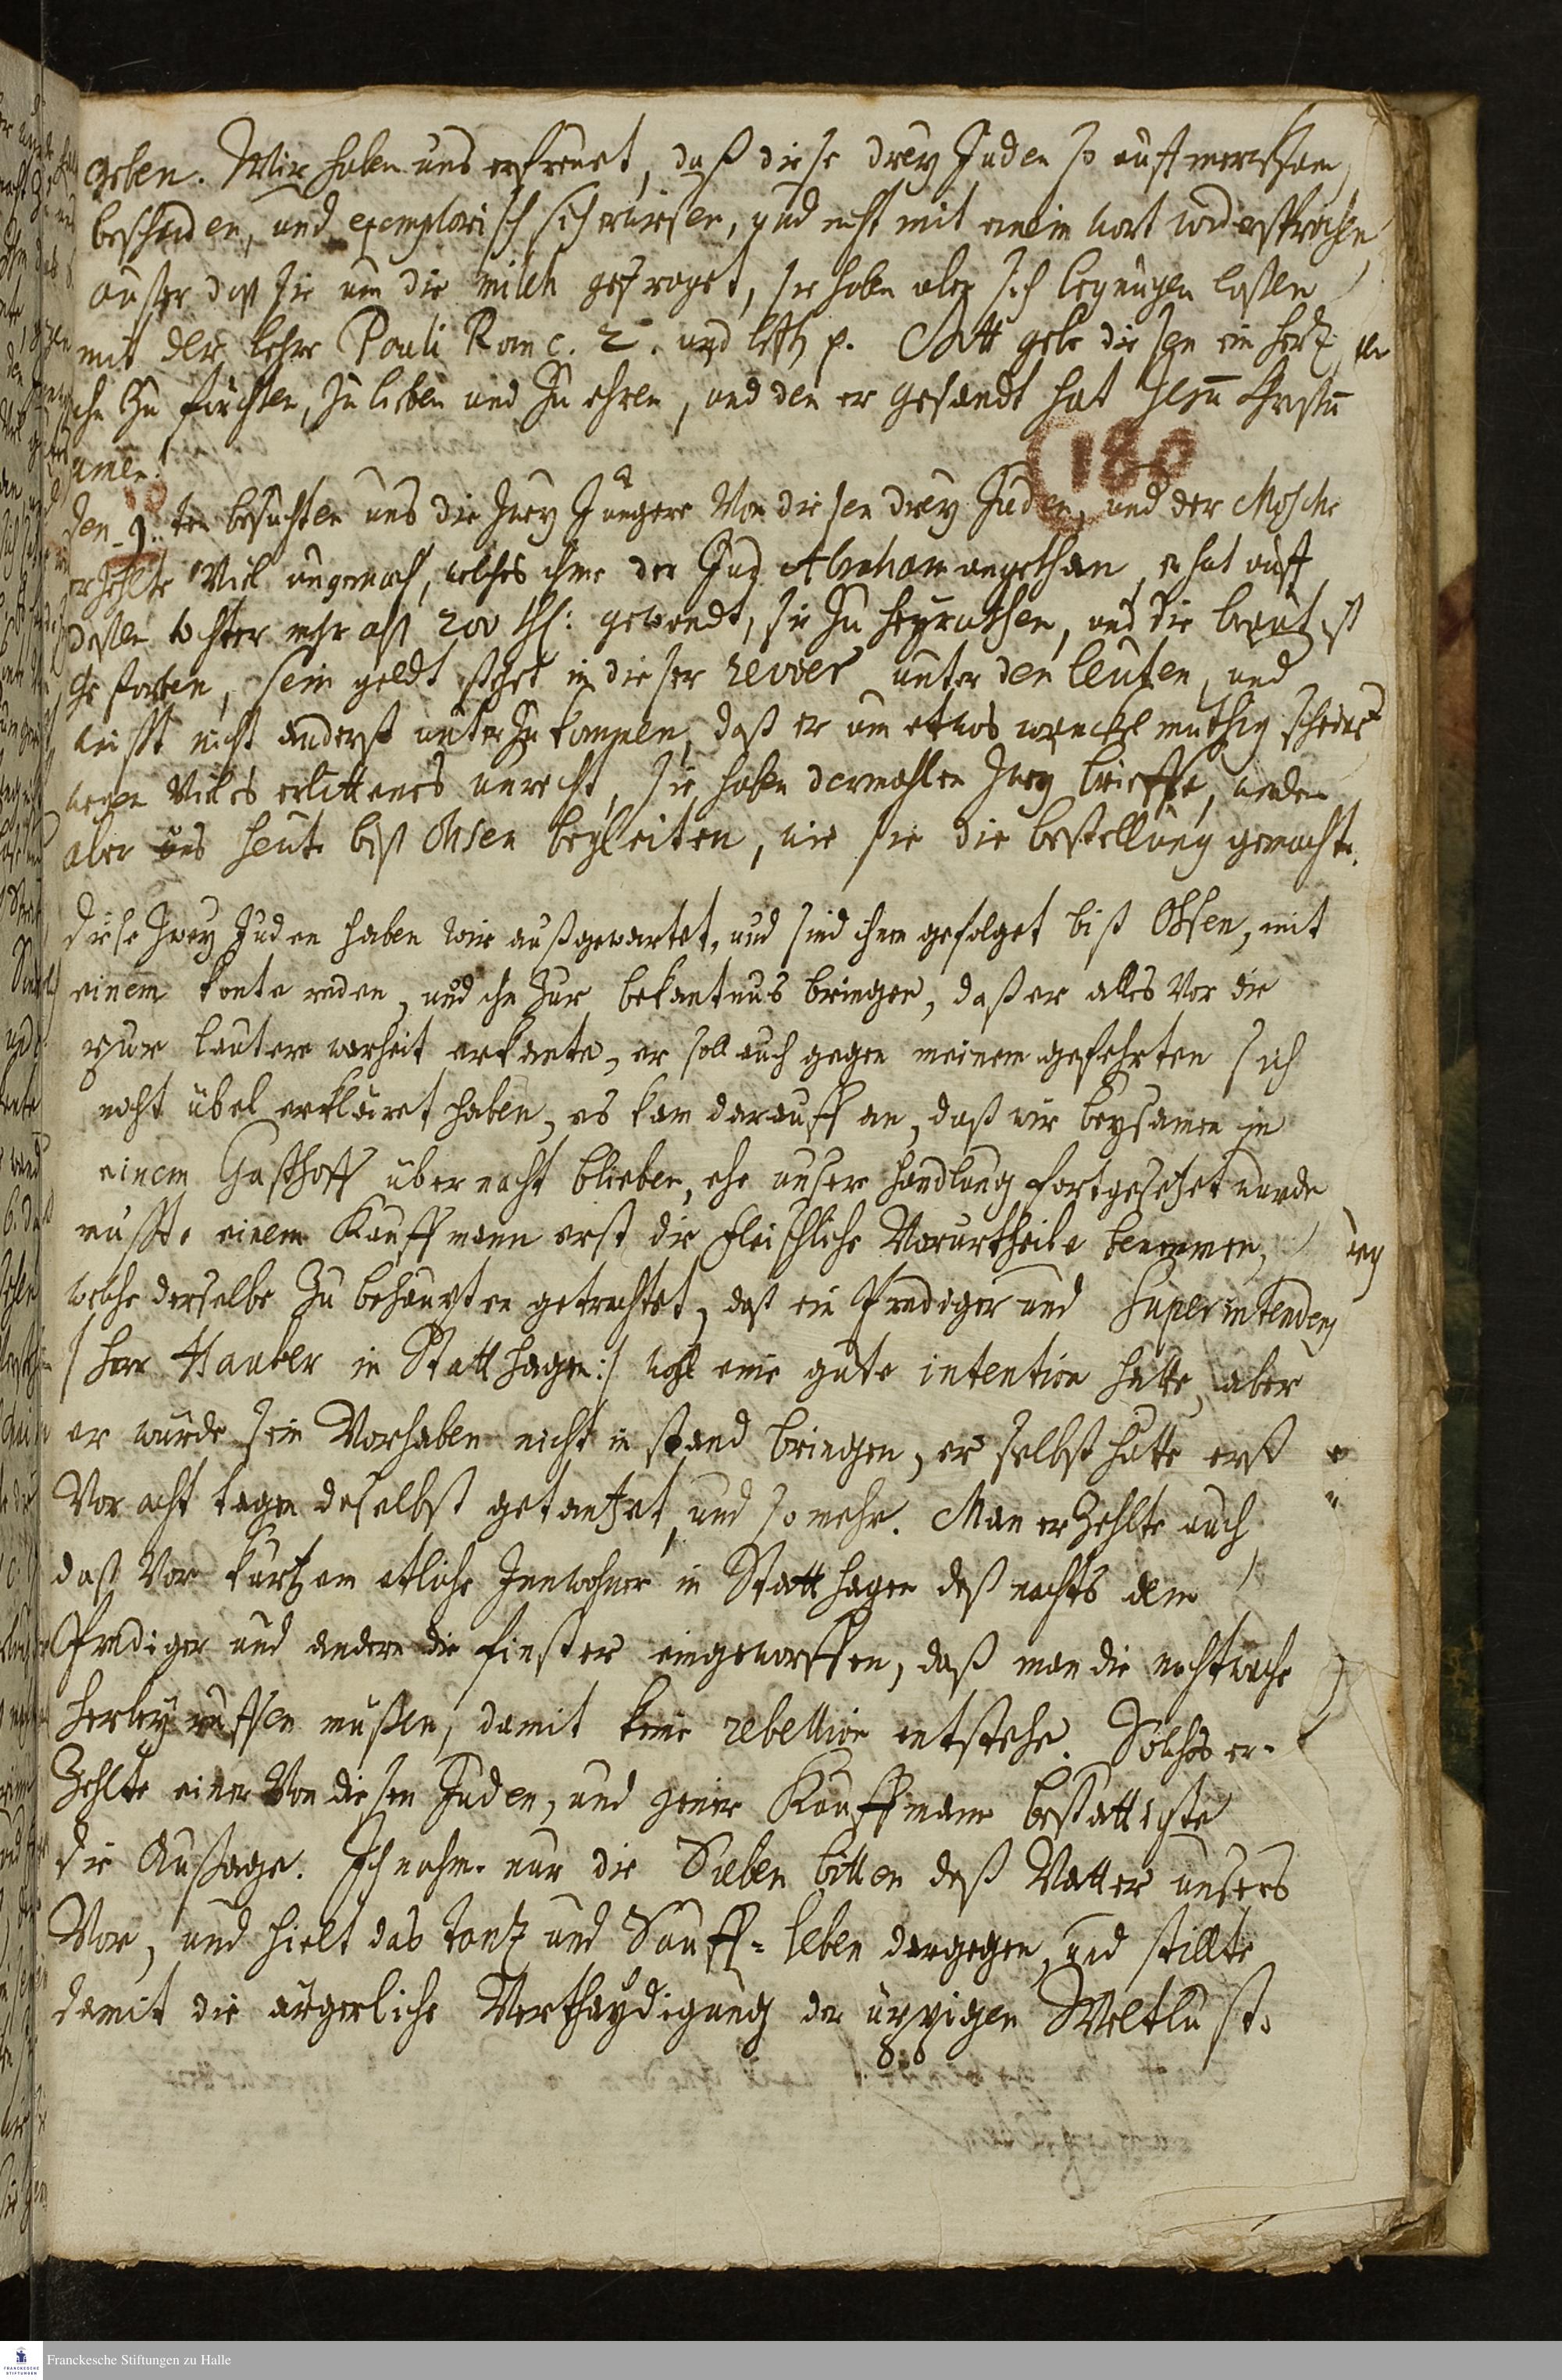 geben. Wir haben uns erfreuet, daß diese drey Juden so auffmercksam
bescheiden, und exemplarisch sich erwiesen, und nicht mit einem wort widersprochen
außer daß sie um die milch gefraget, sie haben aber sich begnügen laßen
mit der lehre Pauli Rom c. 2. und letzt p. Gott gebe diesen ein hertz
ihn zu fürchten, zu lieben und zu ehren, und den er gesandt hat Jesum Christum
amen.
180
den 9.ten besuchten uns die zwey Jüngere von diesen drey Juden, und der Mosche
erzehlte viel ungemach, welches ihme der Jud Abraham angethan, er hat auff
deßen tochter mehr alß 200 thl: gewendt, sie zu heyrathen, und die braut ist
gestorben, sein geldt stehet in dieser revier unter den leuten, und
weißt nicht anderst unterzukommen, daß er um etwas wanckelmüthig scheinet
wegen vieles erlittenes unrecht, sie haben dermahlen zwey brieffe, werden
aber uns heute biß Ohsen begleiten, wie sie die bestellung gemacht.
Diese zwey Juden haben wir außgewartet, und sind ihnen gefolget biß Ohsen, mit
einem konte reden, und ihn zur bekantnus bringen, daß er alles vor die
pur lautere warheit erkante, er soll auch gegen meinem gefehrten sich
nicht übel erkläret haben, es kam darauff an, daß wir beysamen in
einem Gasthoff über nacht blieben, ehe unsere handlung fortgesetzet wurde
mußte einem Kauffmann erst die fleischliche Vorurtheile benemmen,
welche derselbe zu behaupten getrachtet, daß ein Prediger und Superintendens
/: Herr Hauber in Statthagen :/ wohl eine gute intention hätte, aber
er würde sein Vorhaben nicht in stand bringen, er selbst hätte erst
vor acht tagen daselbst getantzet, und so mehr. Man erzehlte auch
daß vor kurtzem etliche Innwohner in Statthagen deß nachts dem
Prediger und andern die finster eingeworffen, daß man die nachtwache
herbey ruffen müßen, damit keine rebellion entstehe. Solches er-
zehlte einer von diesen Juden, und jener Kauffmann bestättigte
die Außage. Ich nahm nur die Sieben bitten deß Vatter unsers
vor, und hielt das tantz und Sauff-leben dargegen, und stillte
damit die ärgerliche Verthaydigung der üppigen Weltlust.
Franckesche Stiftungen zu Halle